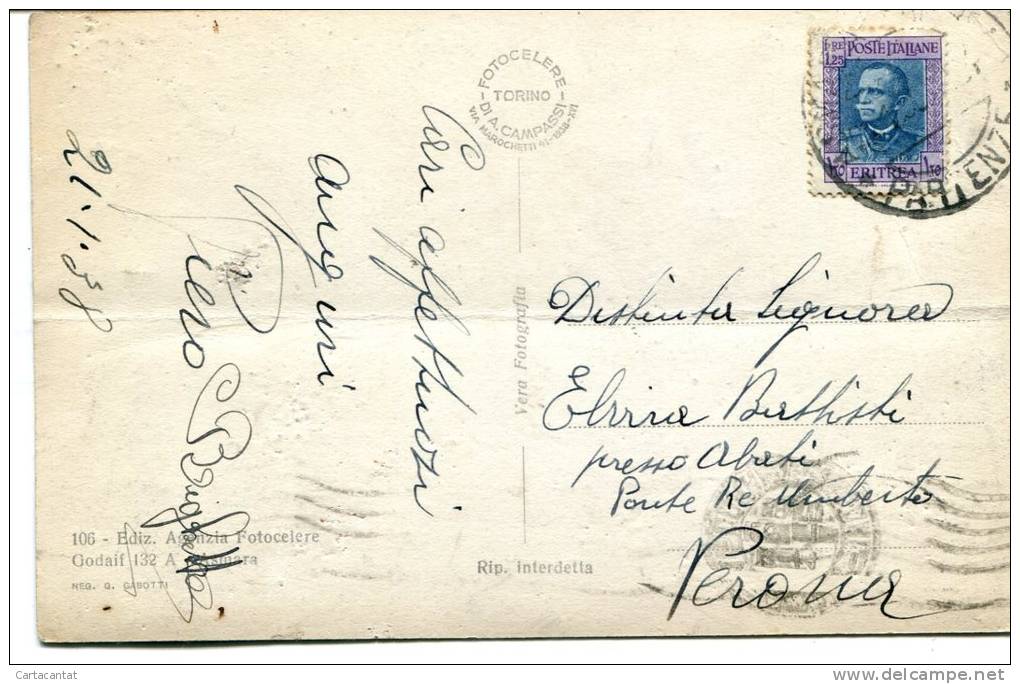 FOTOCELERE
TORINO
DI A. CAMPASSI
VIA MAROCHETTI 41-1938-XVI
LIRE
1.25
POSTE ITALIANE
ERITREA
PARTENZE
21.1.38
Cari affettuosi
auguri
Piero Brighella
Vera Fotografia
Distinta Signora
Elvira Battisti
presso Abati
Ponte Re Umberto
Verona
106 - Ediz. Agenzia Fotocelere
Godaif 132 A Asmara
NEG. G. GABOTTI
Rip. interdetta
Cartacantat
delcampe.net